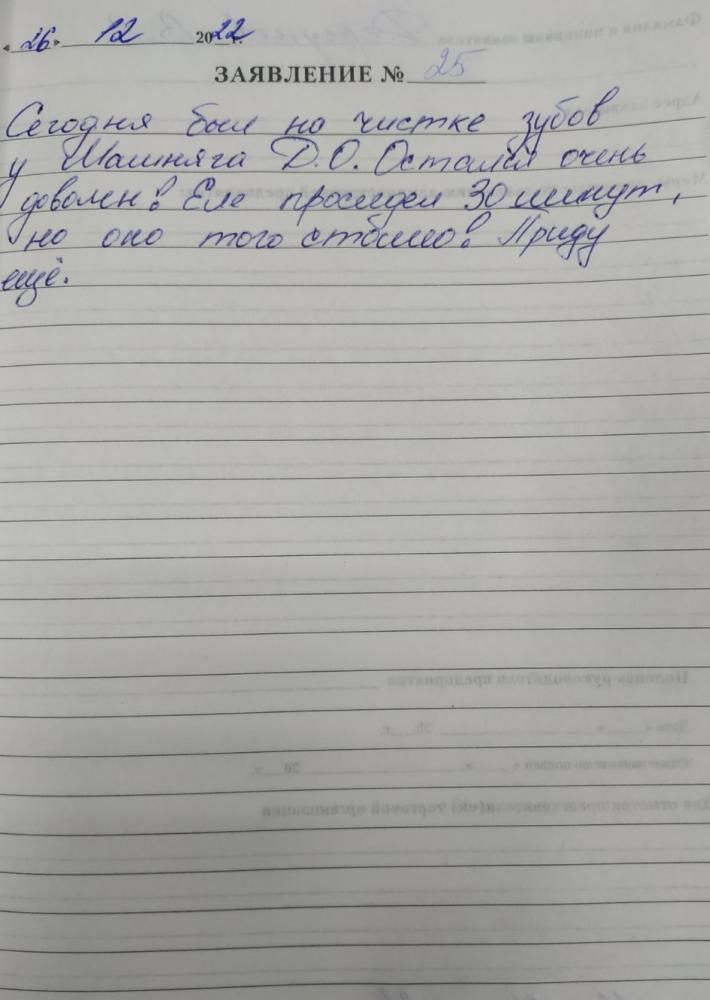 « 26 » 12 2022 г.
ЗАЯВЛЕНИЕ № 25
Сегодня был на чистке зубов
у Шашняга Д.О. Остался очень
доволен! Еле просидел 30 минут,
но оно того стоило! Приду
ещё.